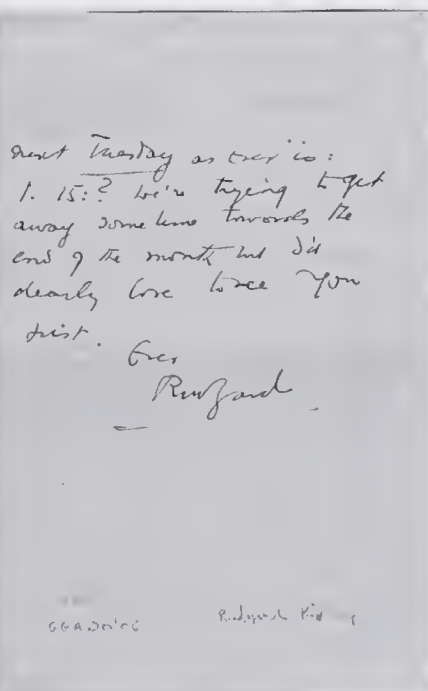 next Tuesday as ever is:
1. 15:? We're trying to get
away sometime towards the
end of the month but I'd
dearly love to see you
first.
Ever
Rudyard
Rudyard